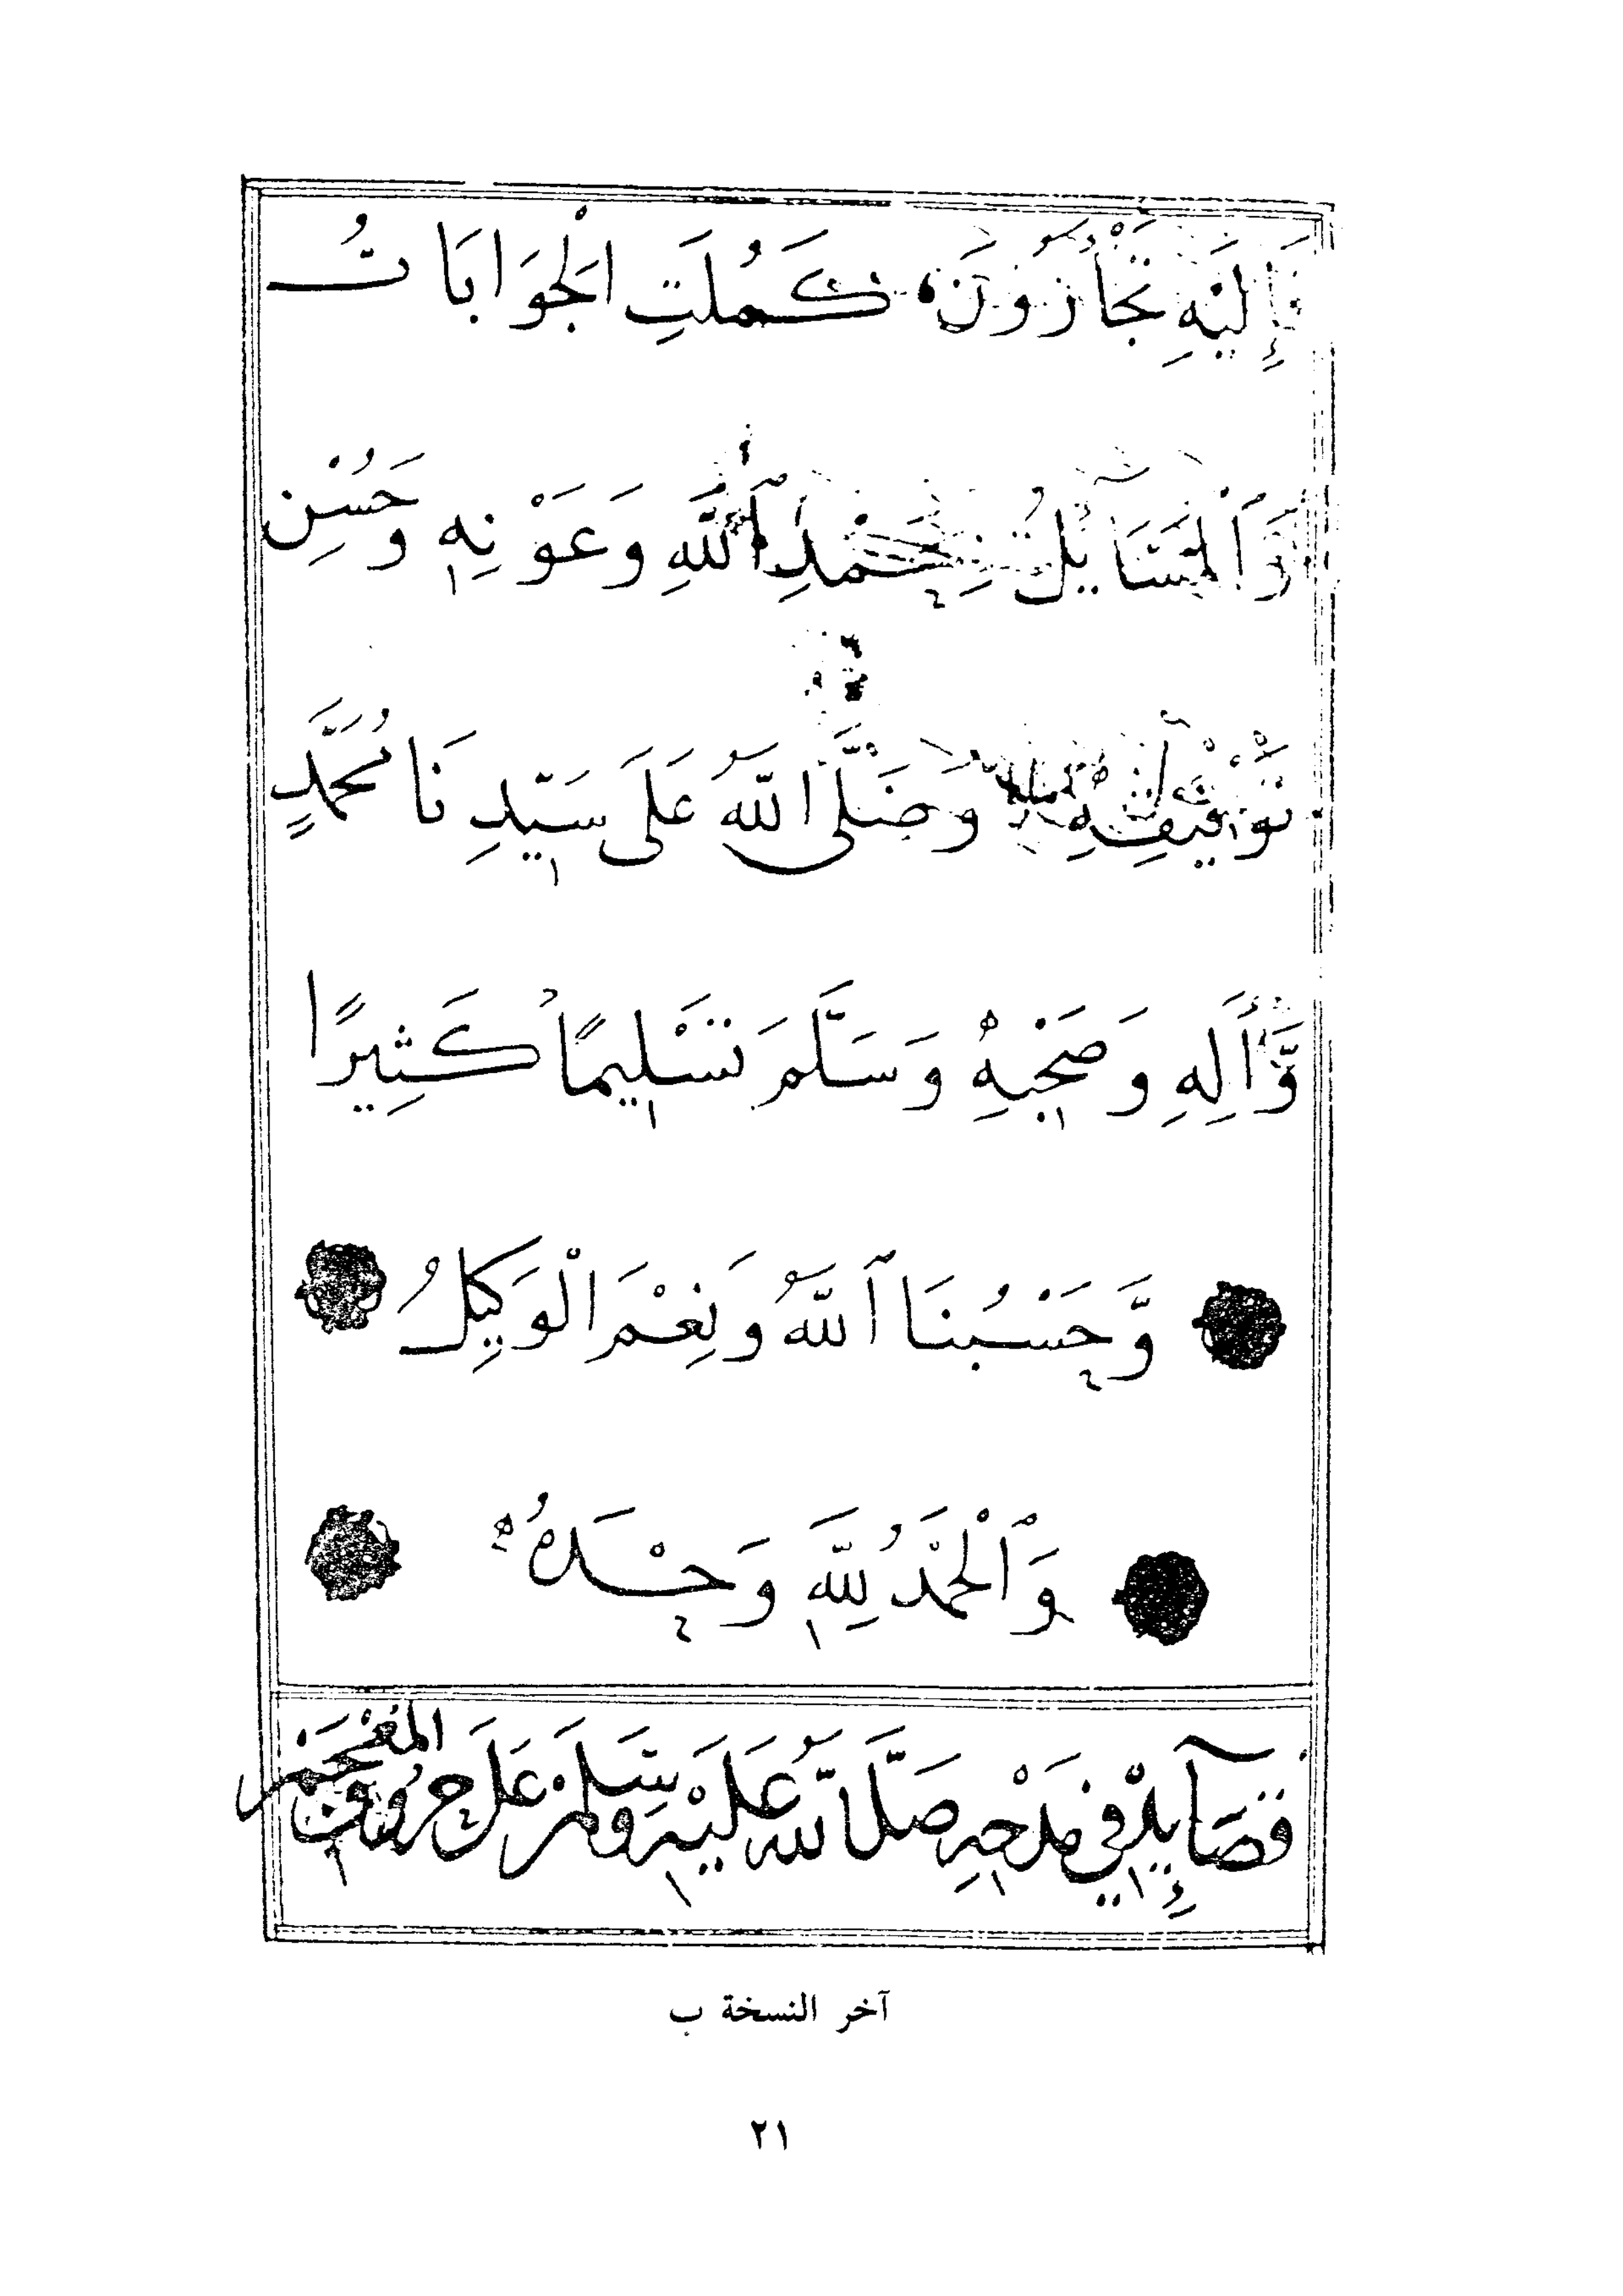 وَإِلَيْهِ تَجْأَرُونَ، كَمُلَتِ الْجَوَابَاتُ
وَٱلْمَسَآيِلُ بِحَمْدِ ٱللَّهِ وَعَوْنِهِ وَحُسْنِ
تَوْفِيقِهِ وَصَلَّى اللَّهُ عَلَى سَيِّدِنَا مُحَمَّدٍ
وَّأَلِهِ وَصَحْبِهِ وَسَلَّمَ تَسْلِيمًا كَثِيرًا
وَّحَسْبُنَا ٱللَّهُ وَنِعْمَ الْوَكِيلُ
وَٱلْحَمْدُ لِلَّهِ وَحْدَهُ
قَصَآيِدُ فِي مَدْحِهِ صَلَّ اللَّهُ عَلَيْهِ وَسَلَّمَ عَلَى حُرُوفِ الْمُعْجَمْ
آخر النسخة ب
٢١